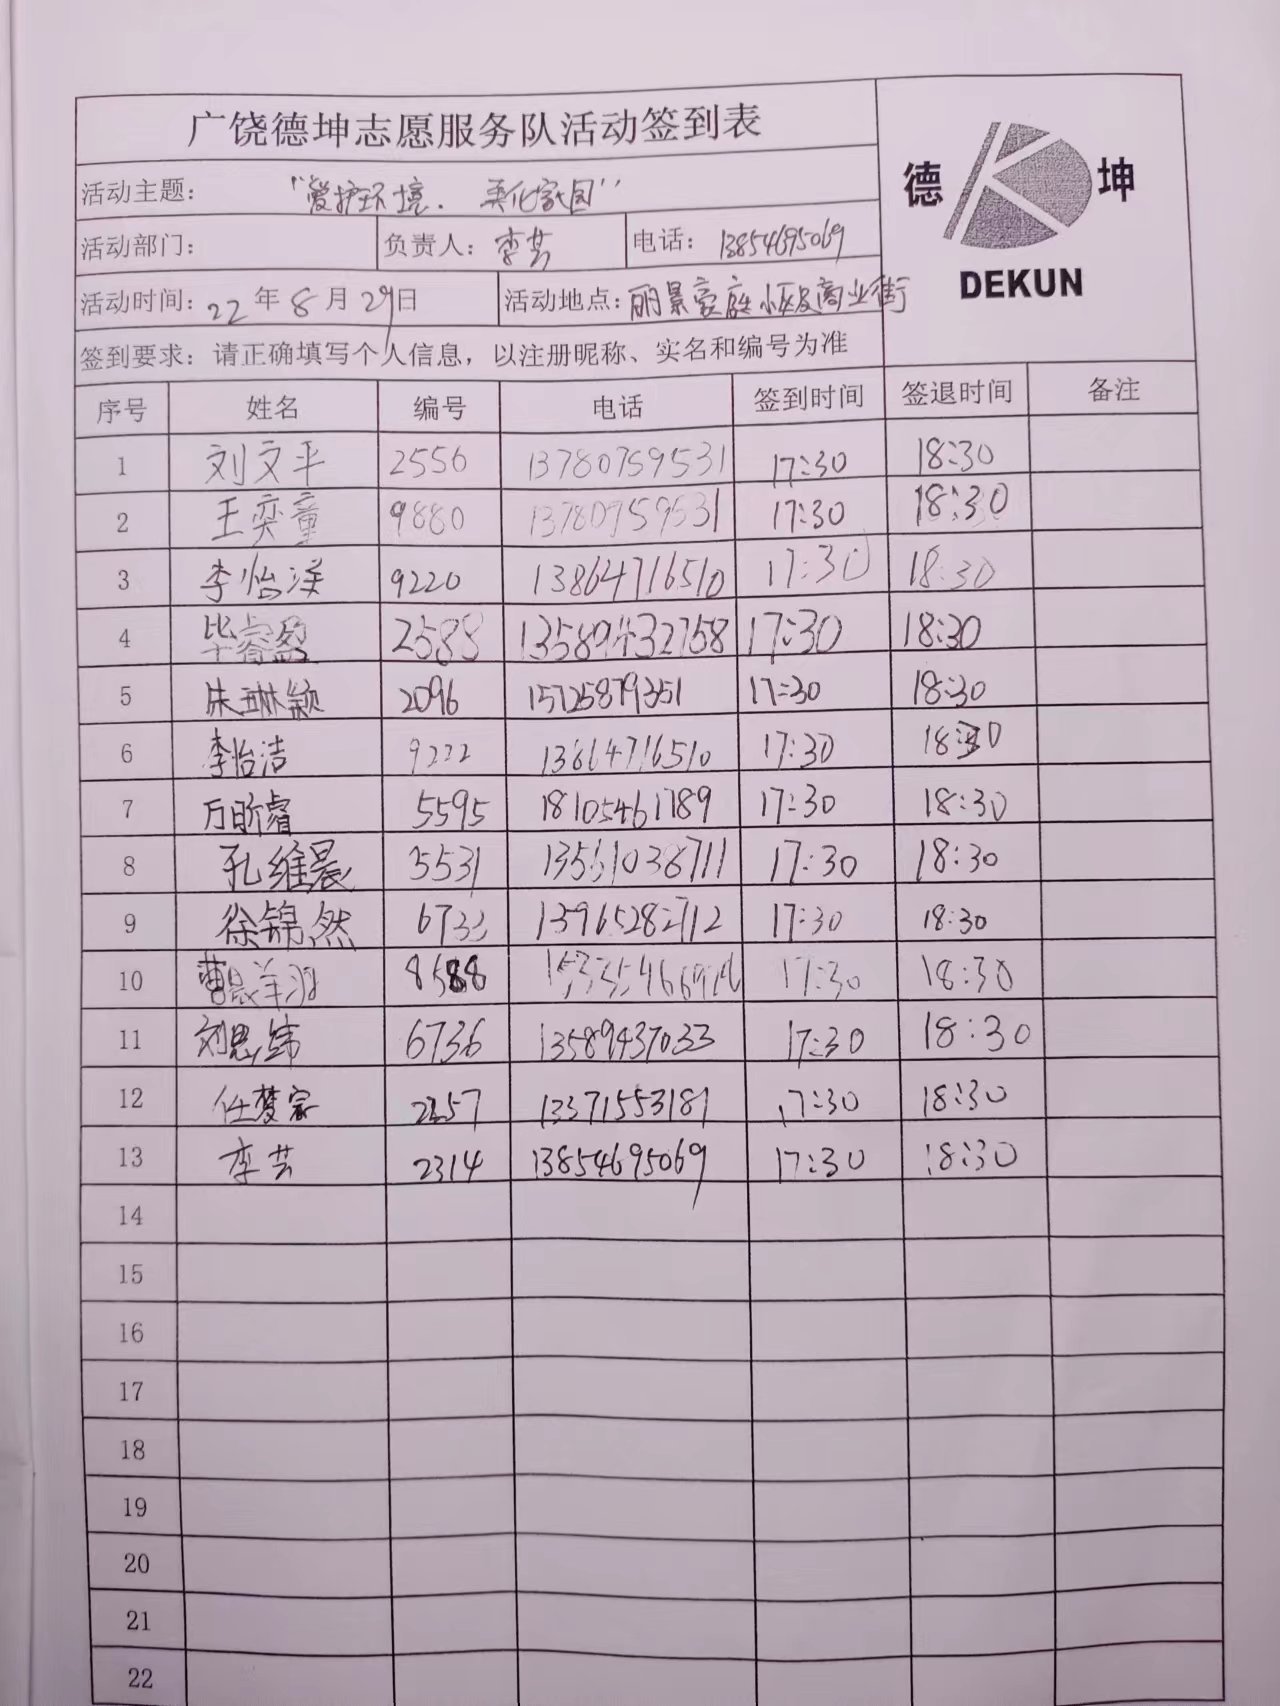 广饶德坤志愿服务队活动签到表
德 坤
DEKUN
活动主题： “爱护环境．美化家园”
活动部门： 负责人：李芸 电话：13854695069
活动时间：22年8月29日 活动地点：丽景豪庭小区及商业街
签到要求：请正确填写个人信息，以注册昵称、实名和编号为准
序号 姓名 编号 电话 签到时间 签退时间 备注
1 刘文平 2556 13780759531 17:30 18:30
2 王奕童 9880 13780759531 17:30 18:30
3 李怡渼 9220 13864716510 17:30 18:30
4 毕睿盈 2588 13589432758 17:30 18:30
5 朱琳颖 2096 15725879351 17:30 18:30
6 李怡洁 9222 13864716510 17:30 18:30
7 万昕睿 5595 18105461789 17:30 18:30
8 孔维晨 5531 13561038711 17:30 18:30
9 徐锦然 6733 13965282712 17:30 18:30
10 曹晟羽 8588 17:30 18:30
11 刘思纬 6736 13589437033 17:30 18:30
12 任梦家 2357 13371553181 17:30 18:30
13 李芸 2314 13854695069 17:30 18:30
14
15
16
17
18
19
20
21
22